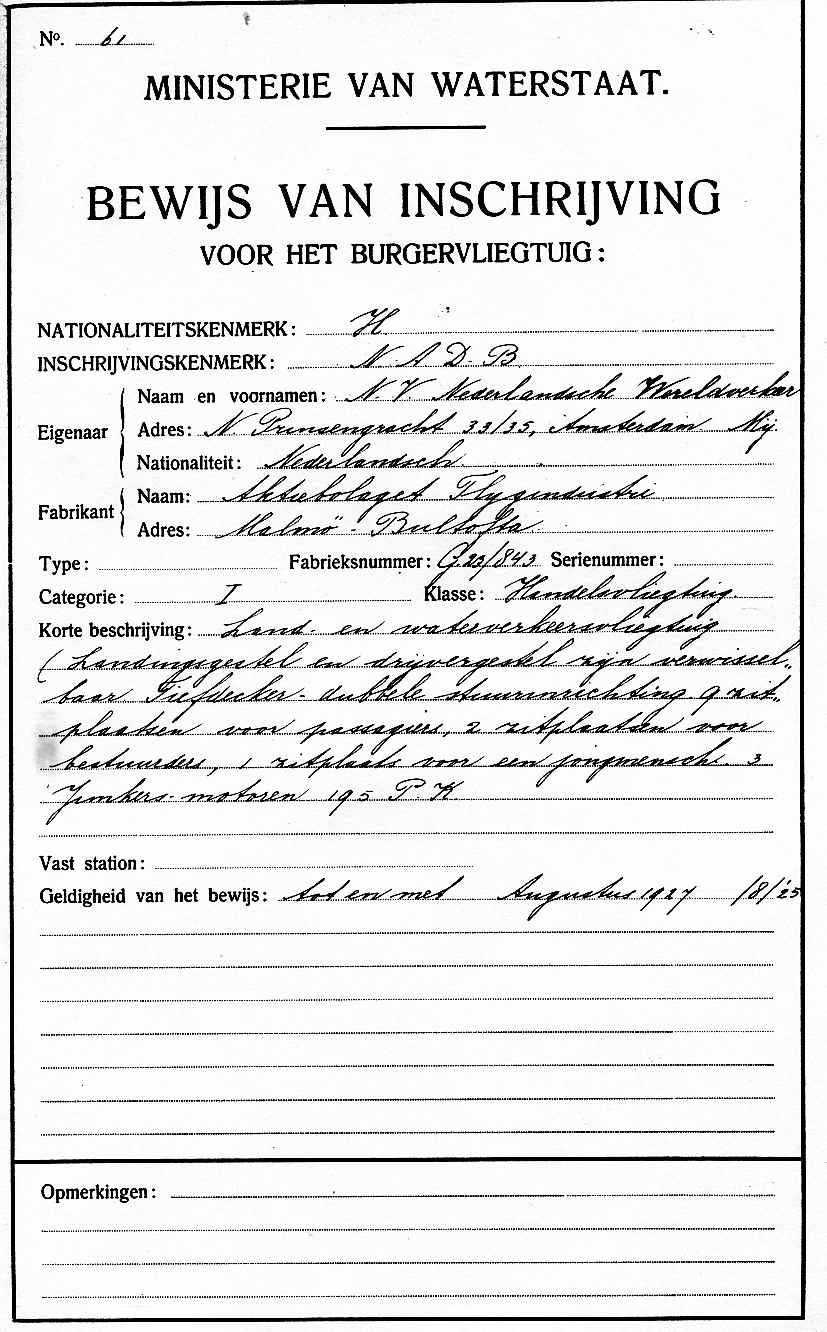 No. 61
MINISTERIE VAN WATERSTAAT.
BEWIJS VAN INSCHRIJVING
VOOR HET BURGERVLIEGTUIG:
NATIONALITEITSKENMERK: H
INSCHRIJVINGSKENMERK: N. A D. B
Eigenaar
Naam en voornamen: N V Nederlandsche Wereldverkeer
Adres: N Prinsengracht 33/35, Amsterdam Mij.
Nationaliteit: Nederlandsch
Fabrikant
Naam: Aktiebolaget Flygindustrie
Adres: Malmö - Bultofta
Type: Fabrieksnummer: G.23/843 Serienummer:
Categorie: I Klasse: Handelsvliegtuig
Korte beschrijving: Land- en waterverkeersvliegtuig
(Landingsgestel en drijvergestel zijn verwissel-
baar Tiefdecker - dubbele stuurinrichting 9 zit-
plaatsen voor passagiers, 2 zitplaatsen voor
bestuurders, 1 zitplaats voor een jongmensch 3
Junkers-motoren 195 P.K
Vast station:
Geldigheid van het bewijs: tot en met Augustus 1927 /8/'25
Opmerkingen: